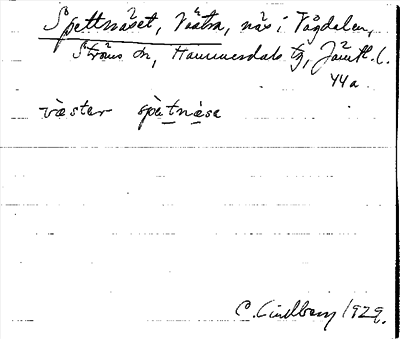 Spettnäset, Västra, näs i Vågdalen,
Ströms sn, Hammerdals tg, Jämtl. l.
44a
væster spètnæse
C. Lindberg 1929.